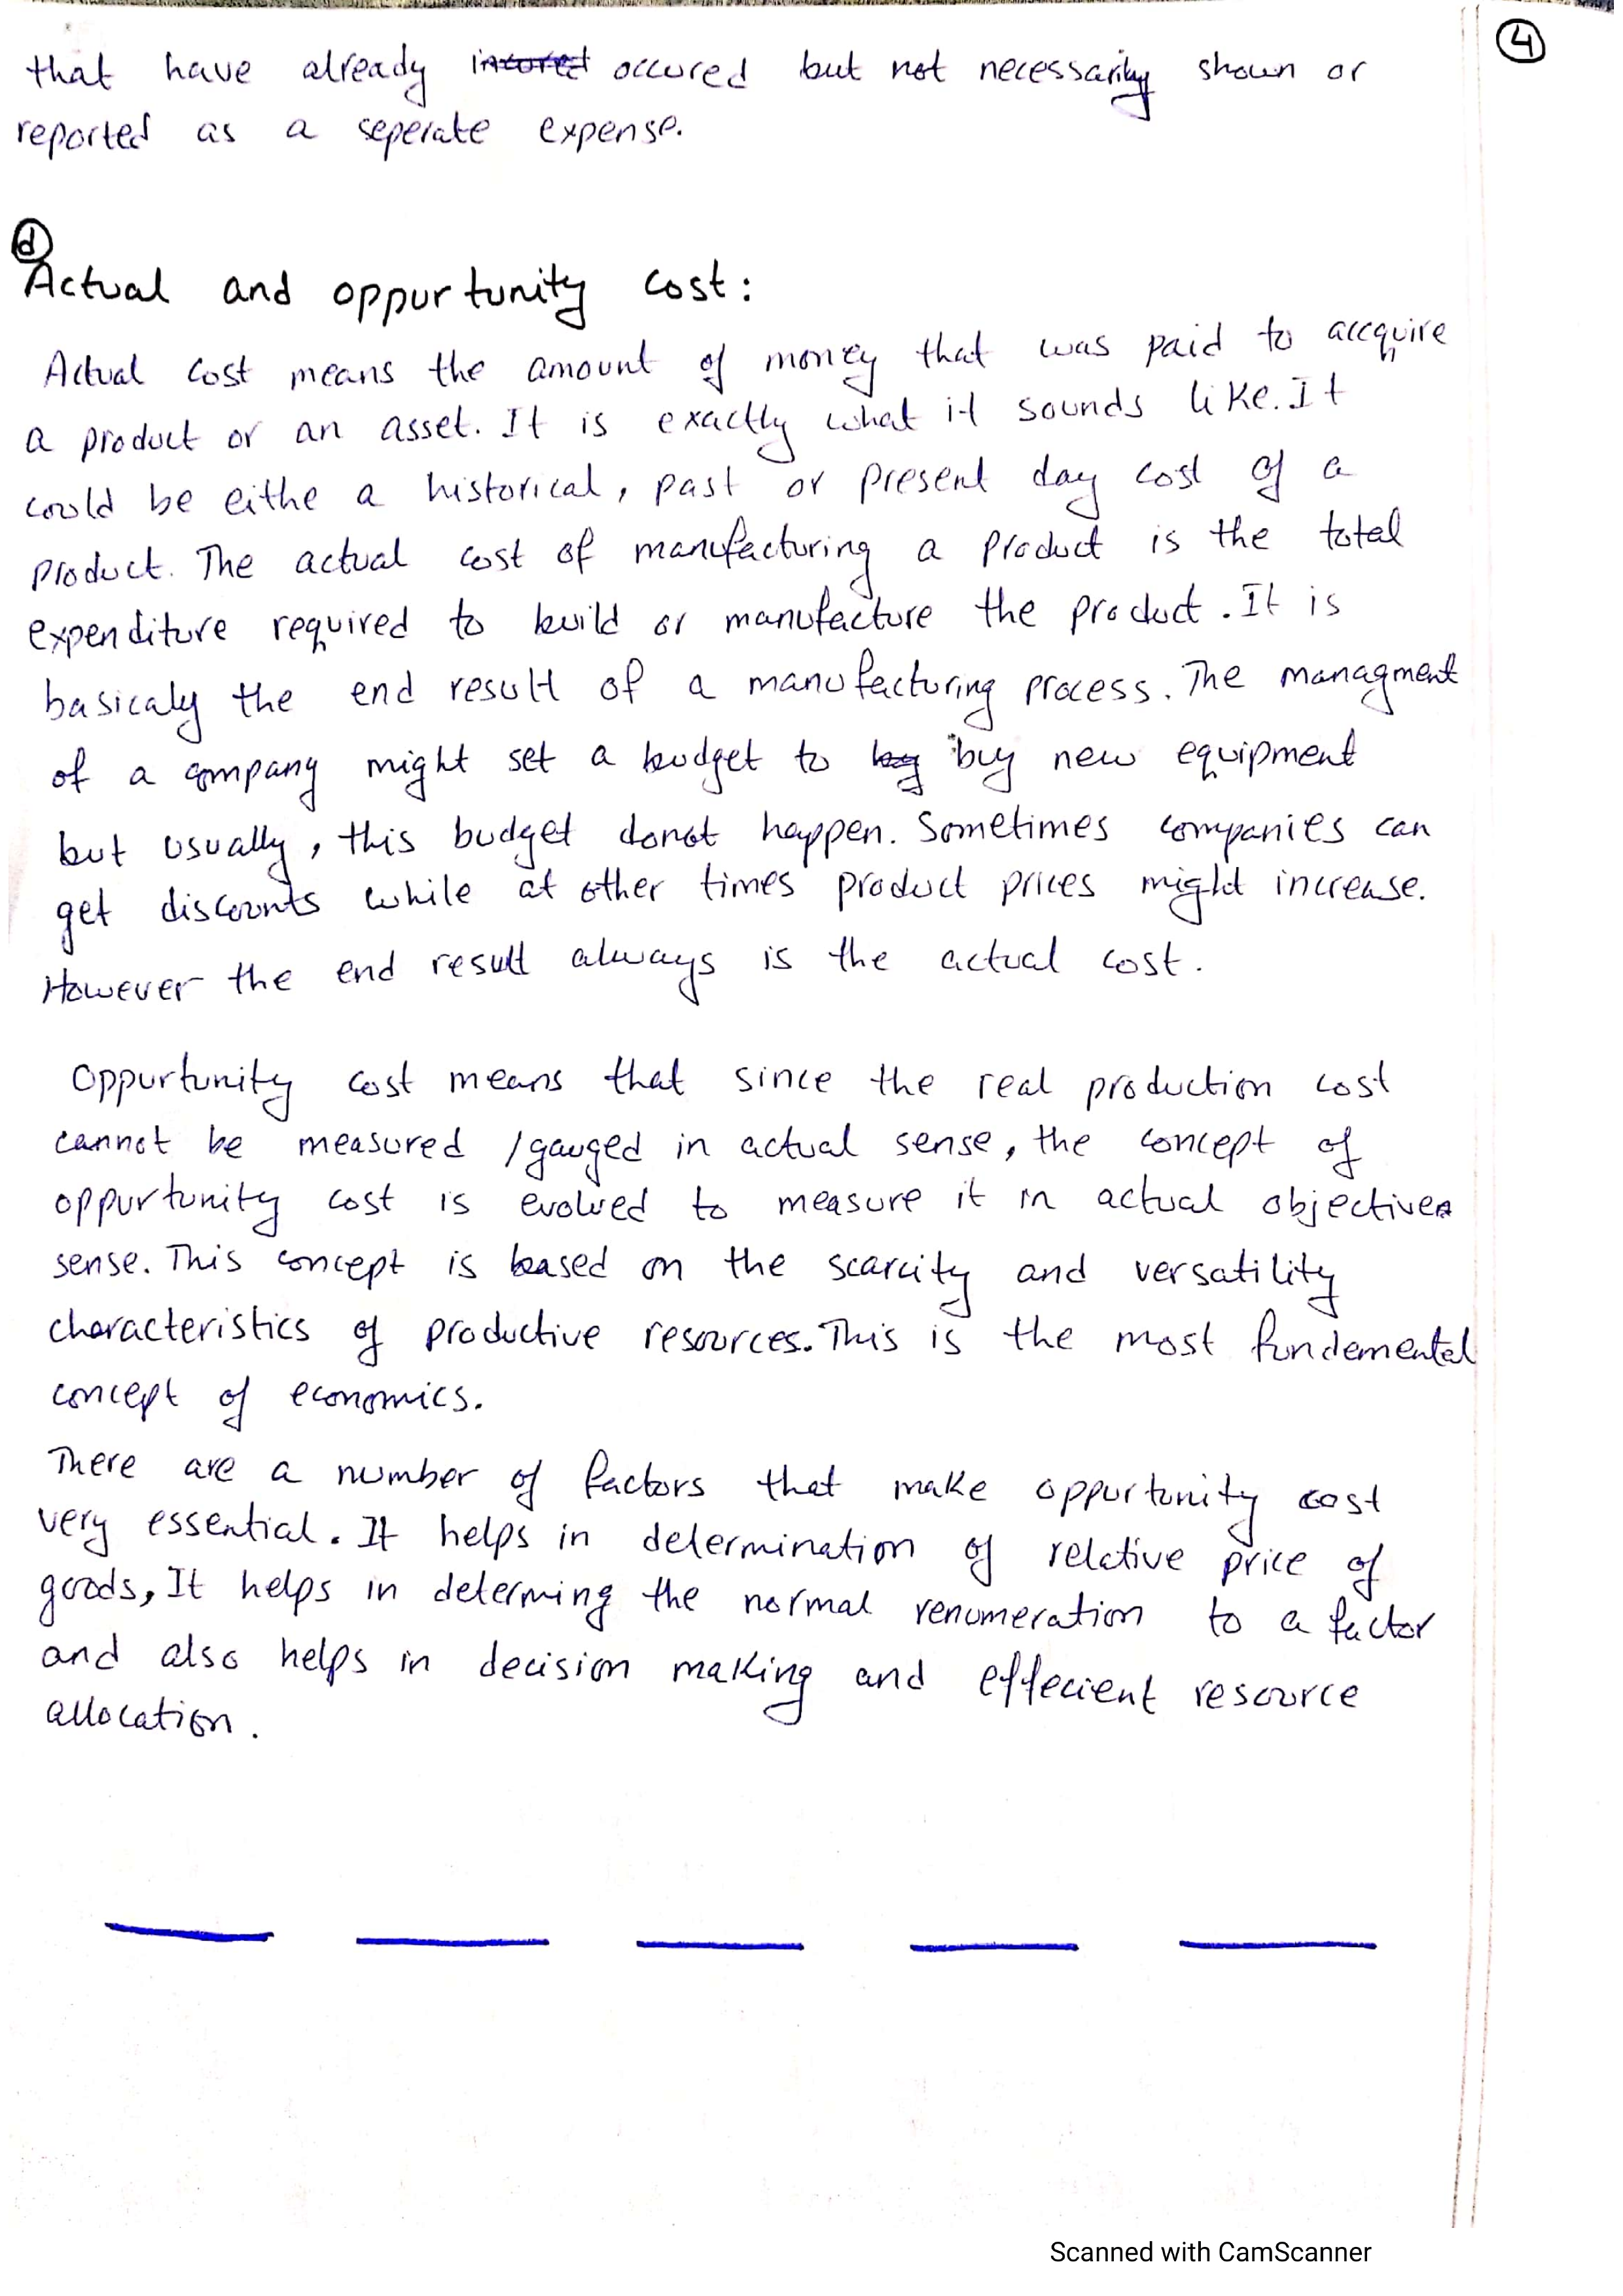 4
that have already incured occured but not necessarily shown or
reported as a seperate expense.
d
Actual and oppurtunity cost:
Actual cost means the amount of money that was paid to accquire
a product or an asset. It is exactly what it sounds like. It
could be eithe a historical, past or present day cost of a
product. The actual cost of manufacturing a product is the total
expenditure required to build or manufacture the product. It is
basicaly the end result of a manufacturing process. The managment
of a company might set a budget to buy new equipment
but usually, this budget donot happen. Sometimes companies can
get discounts while at other times product prices might increase.
However the end result always is the actual cost.
Oppurtunity cost means that since the real production cost
cannot be measured /gauged in actual sense, the concept of
oppurtunity cost is evolved to measure it in actual objective
sense. This concept is based on the scarcity and versatility
characteristics of productive resources. This is the most fundemental
concept of economics.
There are a number of factors that make oppurtunity cost
very essential. It helps in determination of relative price of
goods, It helps in determing the normal renumeration to a factor
and also helps in decision making and effecient resource
allocation.
Scanned with CamScanner